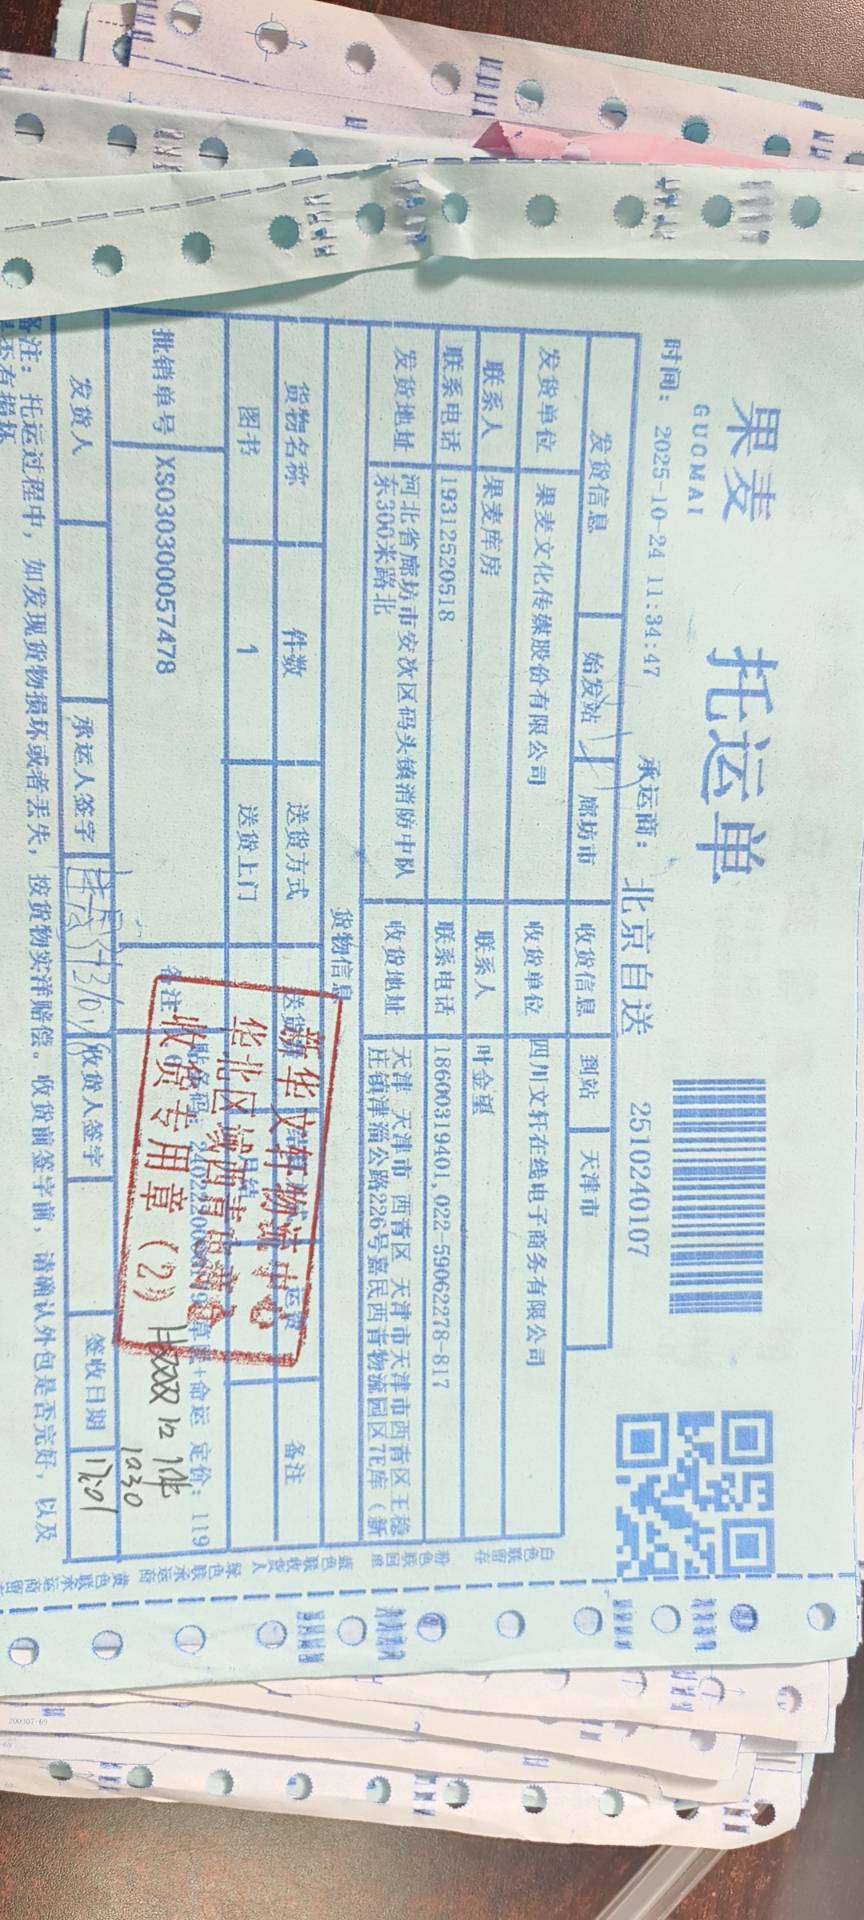 果麦
GUOMAI
托运单
时间: 2025-10-24 11:34:47 承运商: 北京自送 2510240107
发货信息 始发站 廊坊市 收货信息 到站 天津市
发货单位 果麦文化传媒股份有限公司 收货单位 四川文轩在线电子商务有限公司
联系人 果麦库房 联系人 叶金望
联系电话 19312520518 联系电话 18600319401,022-59062278-817
发货地址 河北省廊坊市安次区码头镇消防中队东300米路北 收货地址 天津 天津市 西青区 天津市天津市西青区王稳庄镇津淄公路226号嘉民西青物流园区7E库(新
货物信息
货物名称 件数 送货方式 备注
图书 1 送货上门
批销单号 XS030300057478 备注 +命运 定价: 119
新华文轩物流中心
华北区域西青
收货专用章 (2)
1030
发货人 承运人签字 收货人签字 签收日期
备注: 托运过程中, 如发现货物损坏或者丢失, 按货物实洋赔偿。收货前签字前, 请确认外包是否完好, 以及
是否有损坏
白色联留存 粉色联回单 蓝色联收货人 绿色联承运商 黄色联承运商留存
200307-69